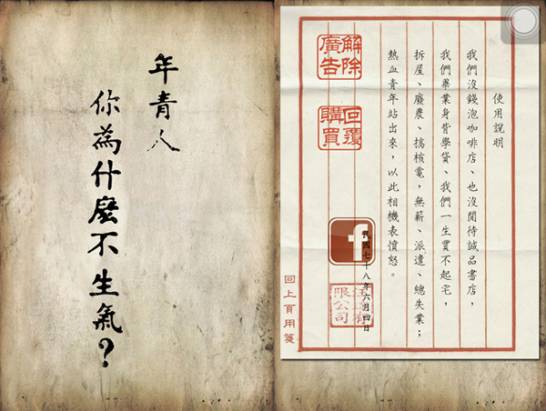 年青人
你為什麼不生氣?
使用說明
我們沒錢泡咖啡店、也沒閒待誠品書店,
我們畢業身背學貸、我們一生買不起宅,
拆屋、廢農、搞核電,無薪、派遣、總失業;
熱血青年站出來,以此相機表憤怒。
七十八年六月四日
解除廣告
回覆購買
f
限公司
回上頁用箋